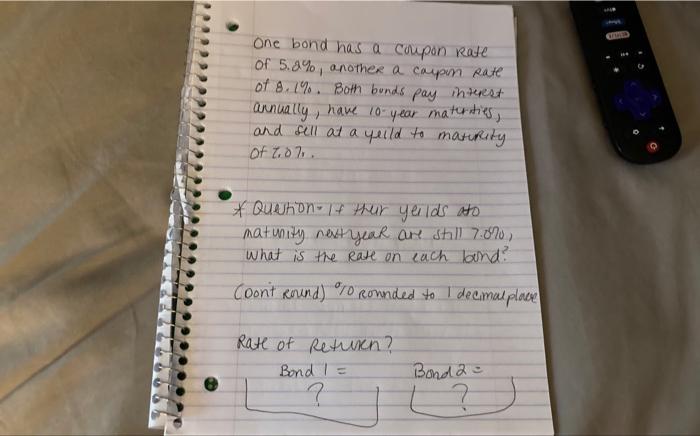 One bond has a coupon Rate
of 5.8%, another a coupon Rate
of 8.1%. Both bonds pay interest
annually, have 10-year maturities,
and sell at a yeild to maturity
of 7.0%.
* Question - If thur yeilds sto
maturity next year are still 7.0%,
What is the Rate on each bond?
(Don't Round) % rounded to 1 decimal place
Rate of Return?
Bond 1 = Bond 2 =
? ?